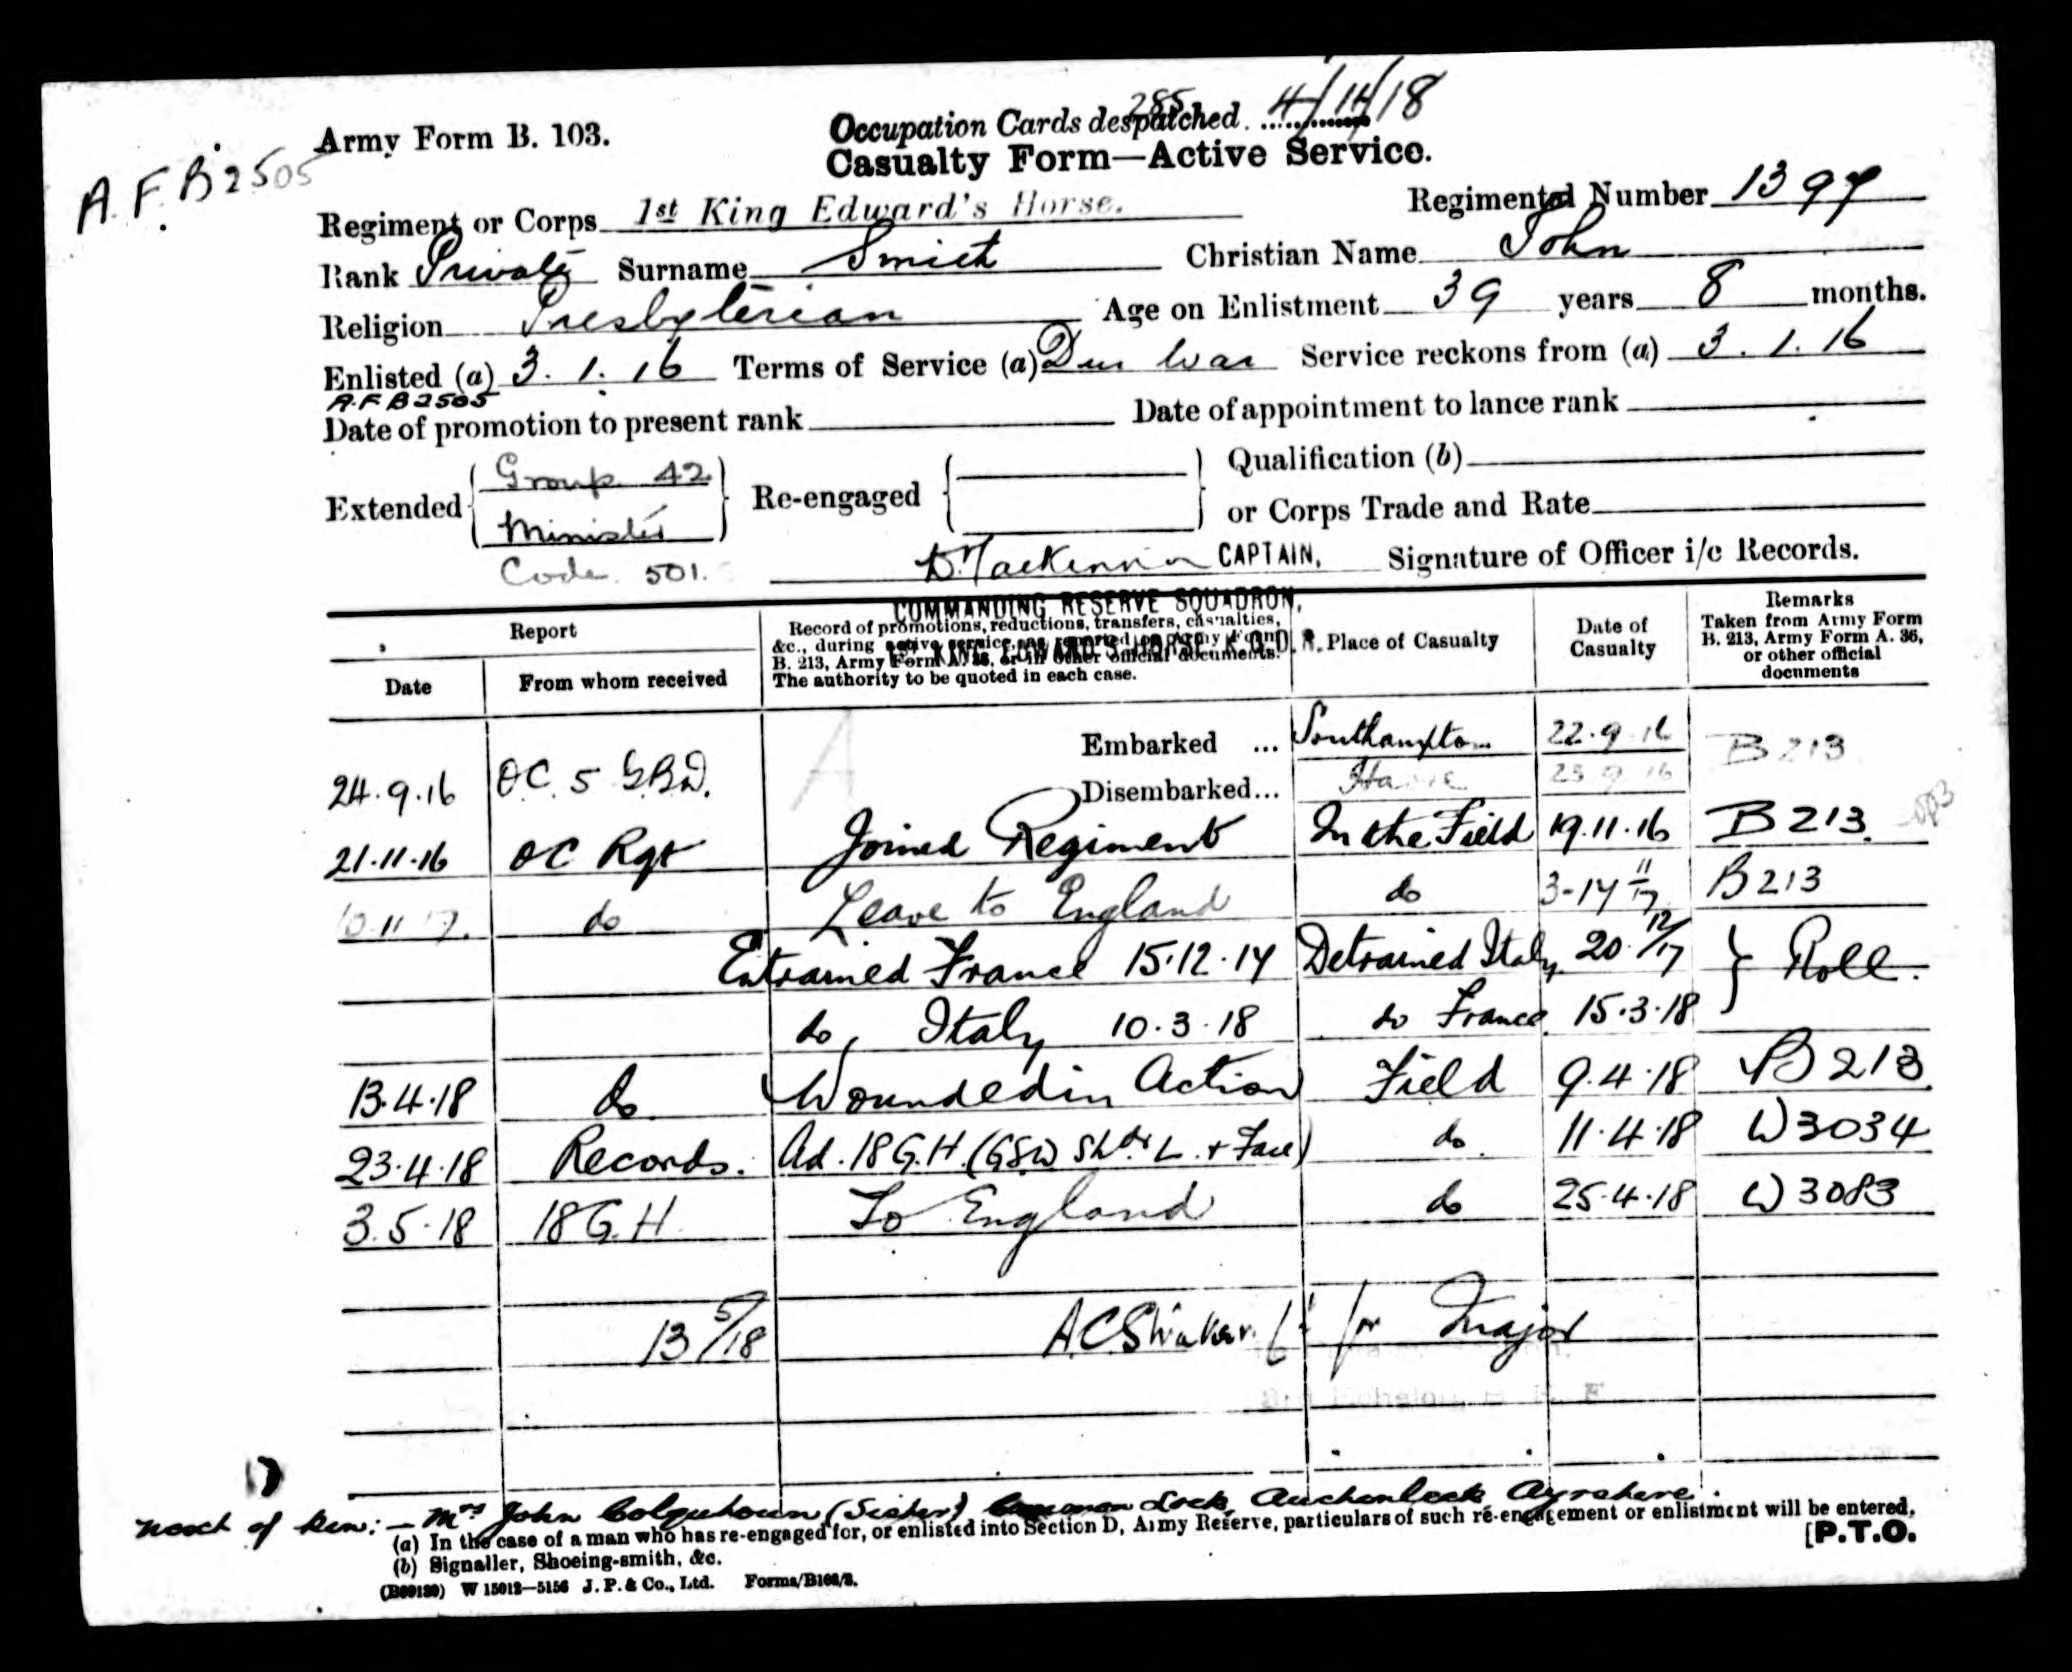 Army Form B. 103.
Occupation Cards despatched. 285 4/11/18
Casualty Form—Active Service.
A.F.B2505
Regiment or Corps 1st King Edward's Horse. Regimental Number 1397
Rank Private Surname Smith Christian Name John
Religion Presbyterian Age on Enlistment 39 years 8 months.
Enlisted (a) 3.1.16 Terms of Service (a) Dur War Service reckons from (a) 3.1.16
A.F B2505
Date of promotion to present rank Date of appointment to lance rank
Extended { Group 42 Minister } Re-engaged { } Qualification (b)
or Corps Trade and Rate
Code 501.
D. Mackinnon CAPTAIN, Signature of Officer i/c Records.
COMMANDING RESERVE SQUADRON,
KING EDWARD'S HORSE, K.O.D.R.
Report
Date
From whom received
Record of promotions, reductions, transfers, casualties,
&c., during active service, as reported on Army Form
B. 213, Army Form A. 36, or in other official documents.
The authority to be quoted in each case.
Place of Casualty
Date of
Casualty
Remarks
Taken from Army Form
B. 213, Army Form A. 36,
or other official
documents
Embarked ... Southampton 22.9.16
24.9.16 OC 5 GBD. Disembarked... Havre 23 9 16 B213
21.11.16 OC Rgt Joined Regiment In the Field 19.11.16 B213
10 11 17. do Leave to England do 3-17 11/17 B213
Entrained France 15.12.17 Detrained Italy 20 12/17 } Roll.
do, Italy 10.3.18 do France 15.3.18
13.4.18 do Wounded in Action Field 9.4.18 B213
23.4.18 Records. Ad. 18 G.H. (GSW Shdr L. + Face) do. 11.4.18 W3034
3.5.18 18 G.H To England do 25.4.18 W3083
13/5/18 for Major
next of kin:- Mrs John Colquhoun (Sister) Lock, Auchinleck Ayrshire.
(a) In the case of a man who has re-engaged for, or enlisted into Section D, Army Reserve, particulars of such re-engagement or enlistment will be entered.
(b) Signaller, Shoeing-smith, &c.
[P.T.O.
W 15012—5156 J. P. & Co., Ltd. Forms/B103/3.